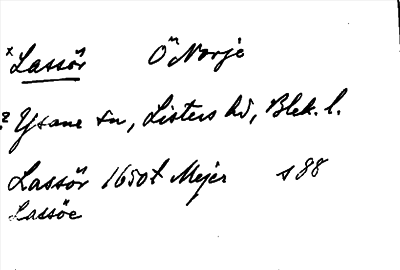 x Lassör Ö Norje
? Ysane sn, Listers hd, Blek. l.
Lassör 1650t Mejer s 88
Lassöe